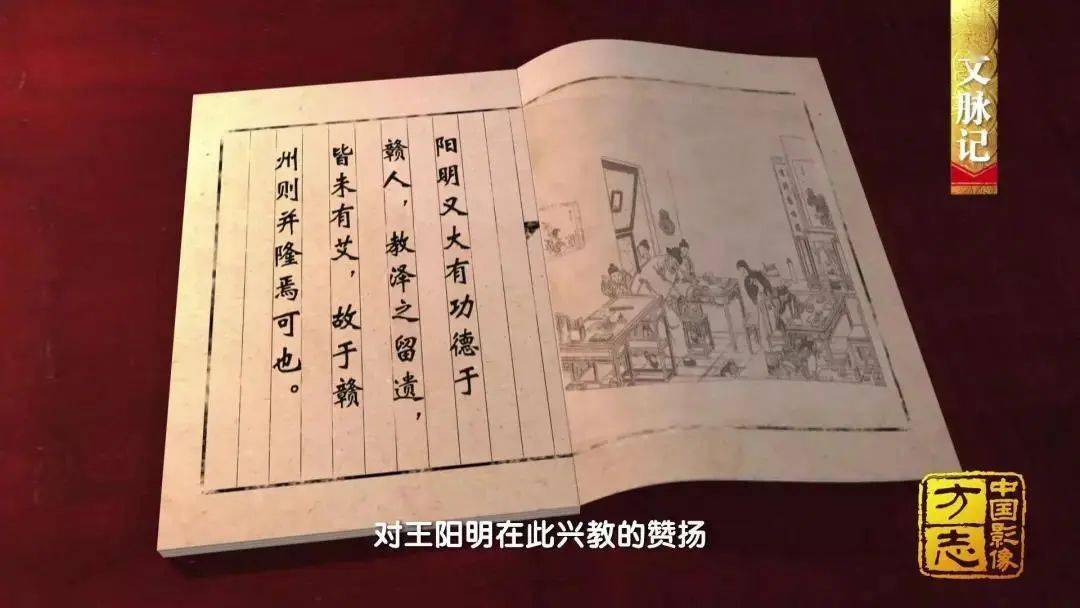 文脉记
阳明又大有功德于
赣人，教泽之留遗，
皆未有艾，故于赣
州则并隆焉可也。
对王阳明在此兴教的赞扬
中国影像
方志